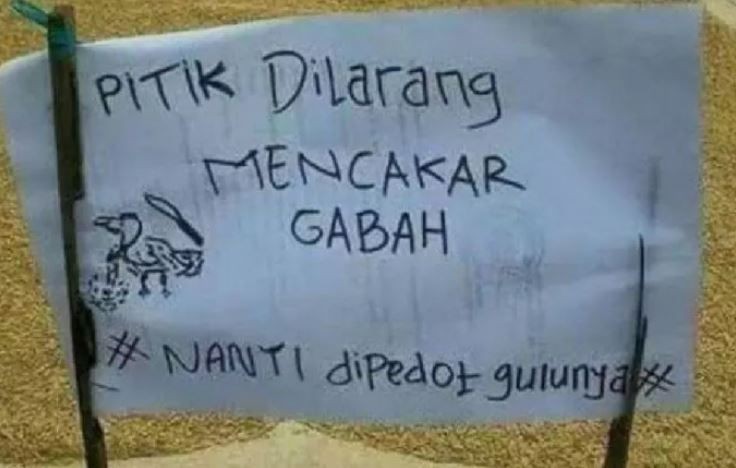 PITIK DiLarang
MENCAKAR
GABAH
# NANTI diPedot gulunya #